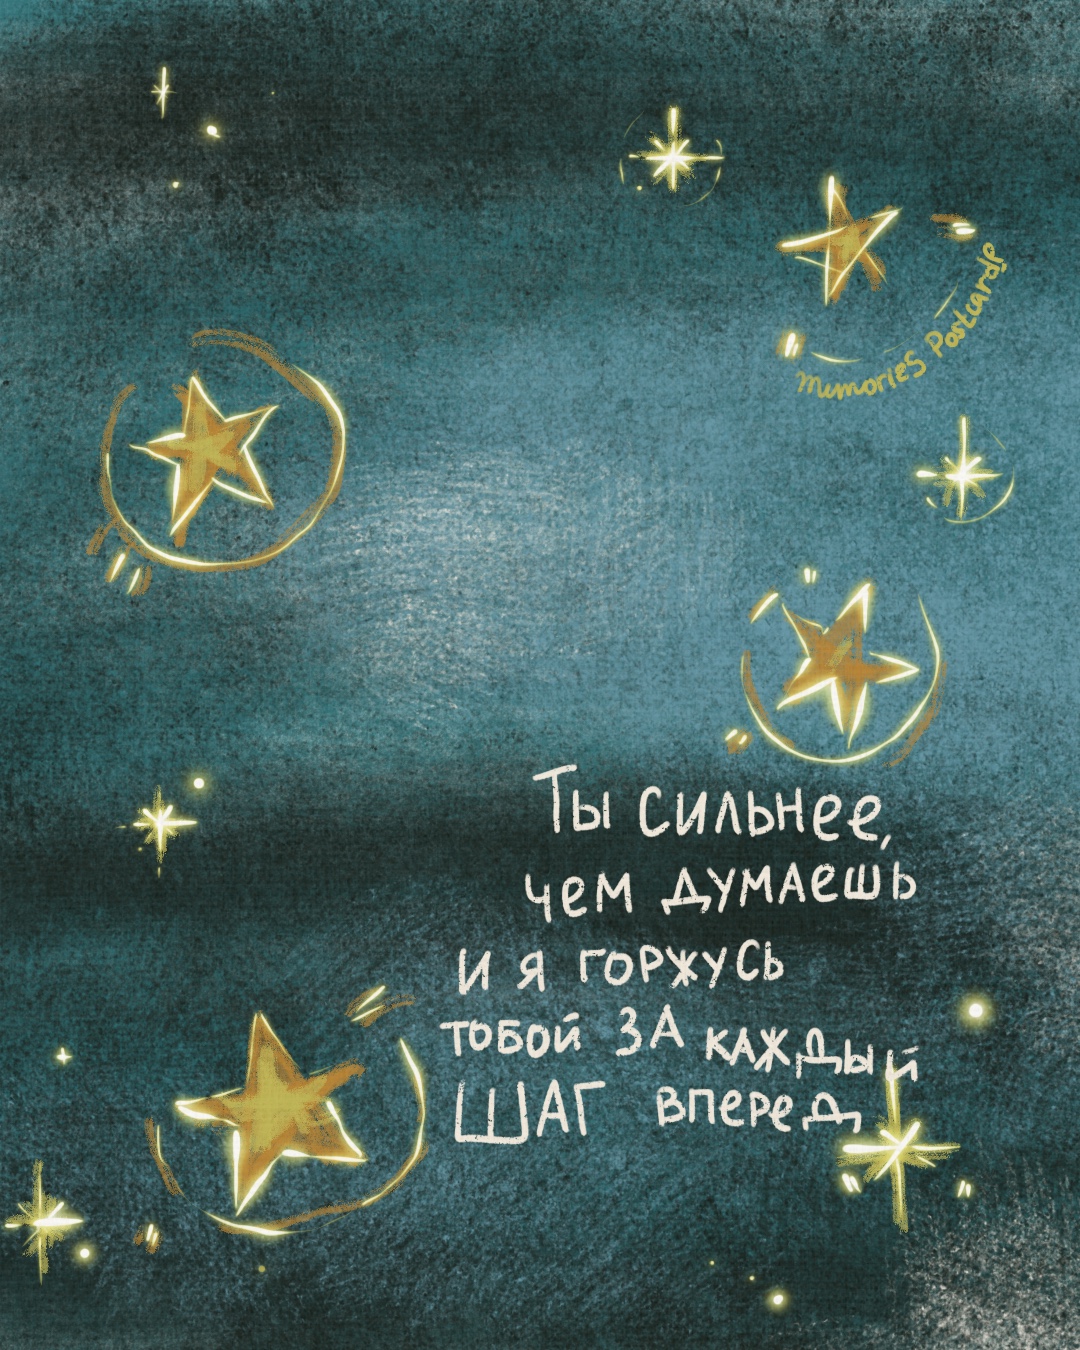 Memories Postcards
Ты сильнее,
чем думаешь
и я горжусь
тобой за каждый
шаг вперед